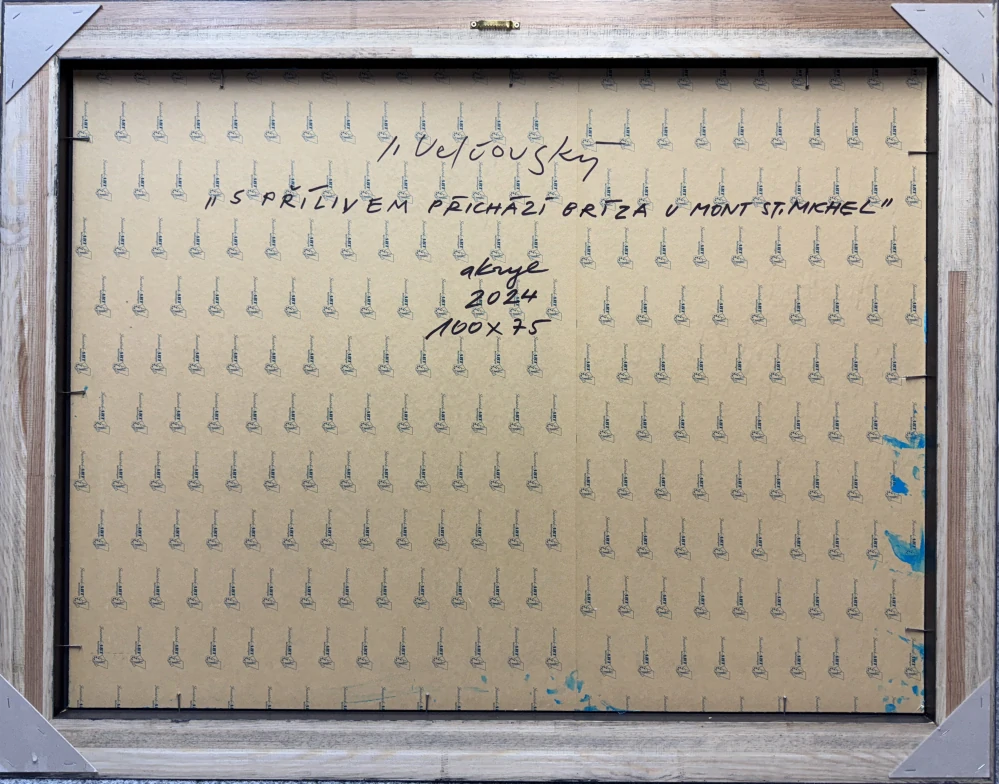 J. Velčovský
"S PŘÍLIVEM PŘICHÁZÍ BRÍZA U MONT ST. MICHEL"
akryl
2024
100x75